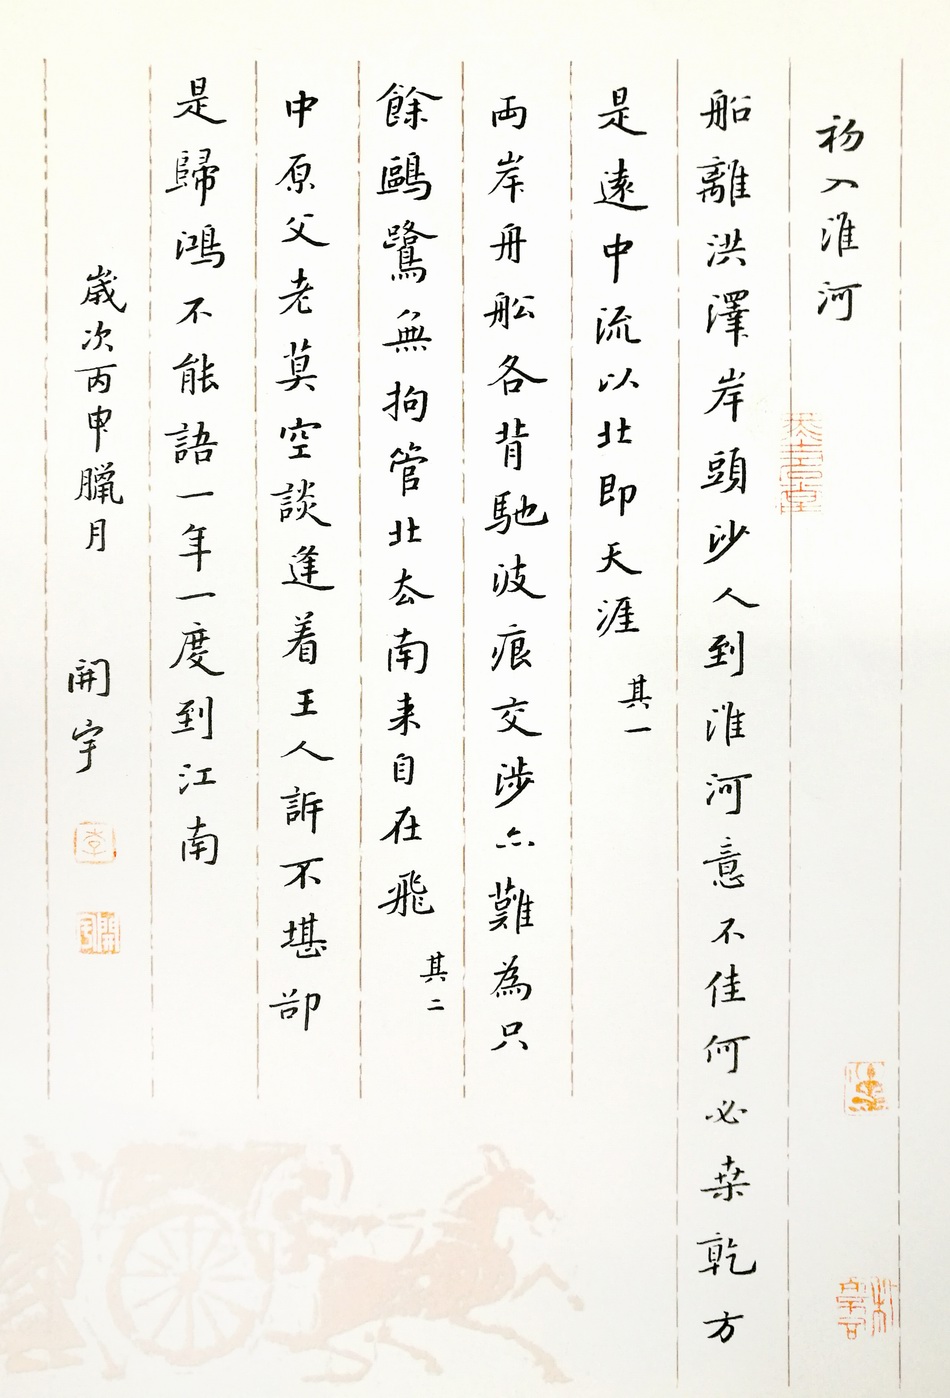 初入淮河
船離洪澤岸頭沙人到淮河意不佳何必桒乾方
是遠中流以北即天涯 其一
両岸舟舩各背馳波痕交涉亦難為只
餘鷗鷺無拘管北去南来自在飛 其二
中原父老莫空談逢着王人訴不堪卻
是歸鴻不能語一年一度到江南
歲次丙申臘月 開宇
李
開宇